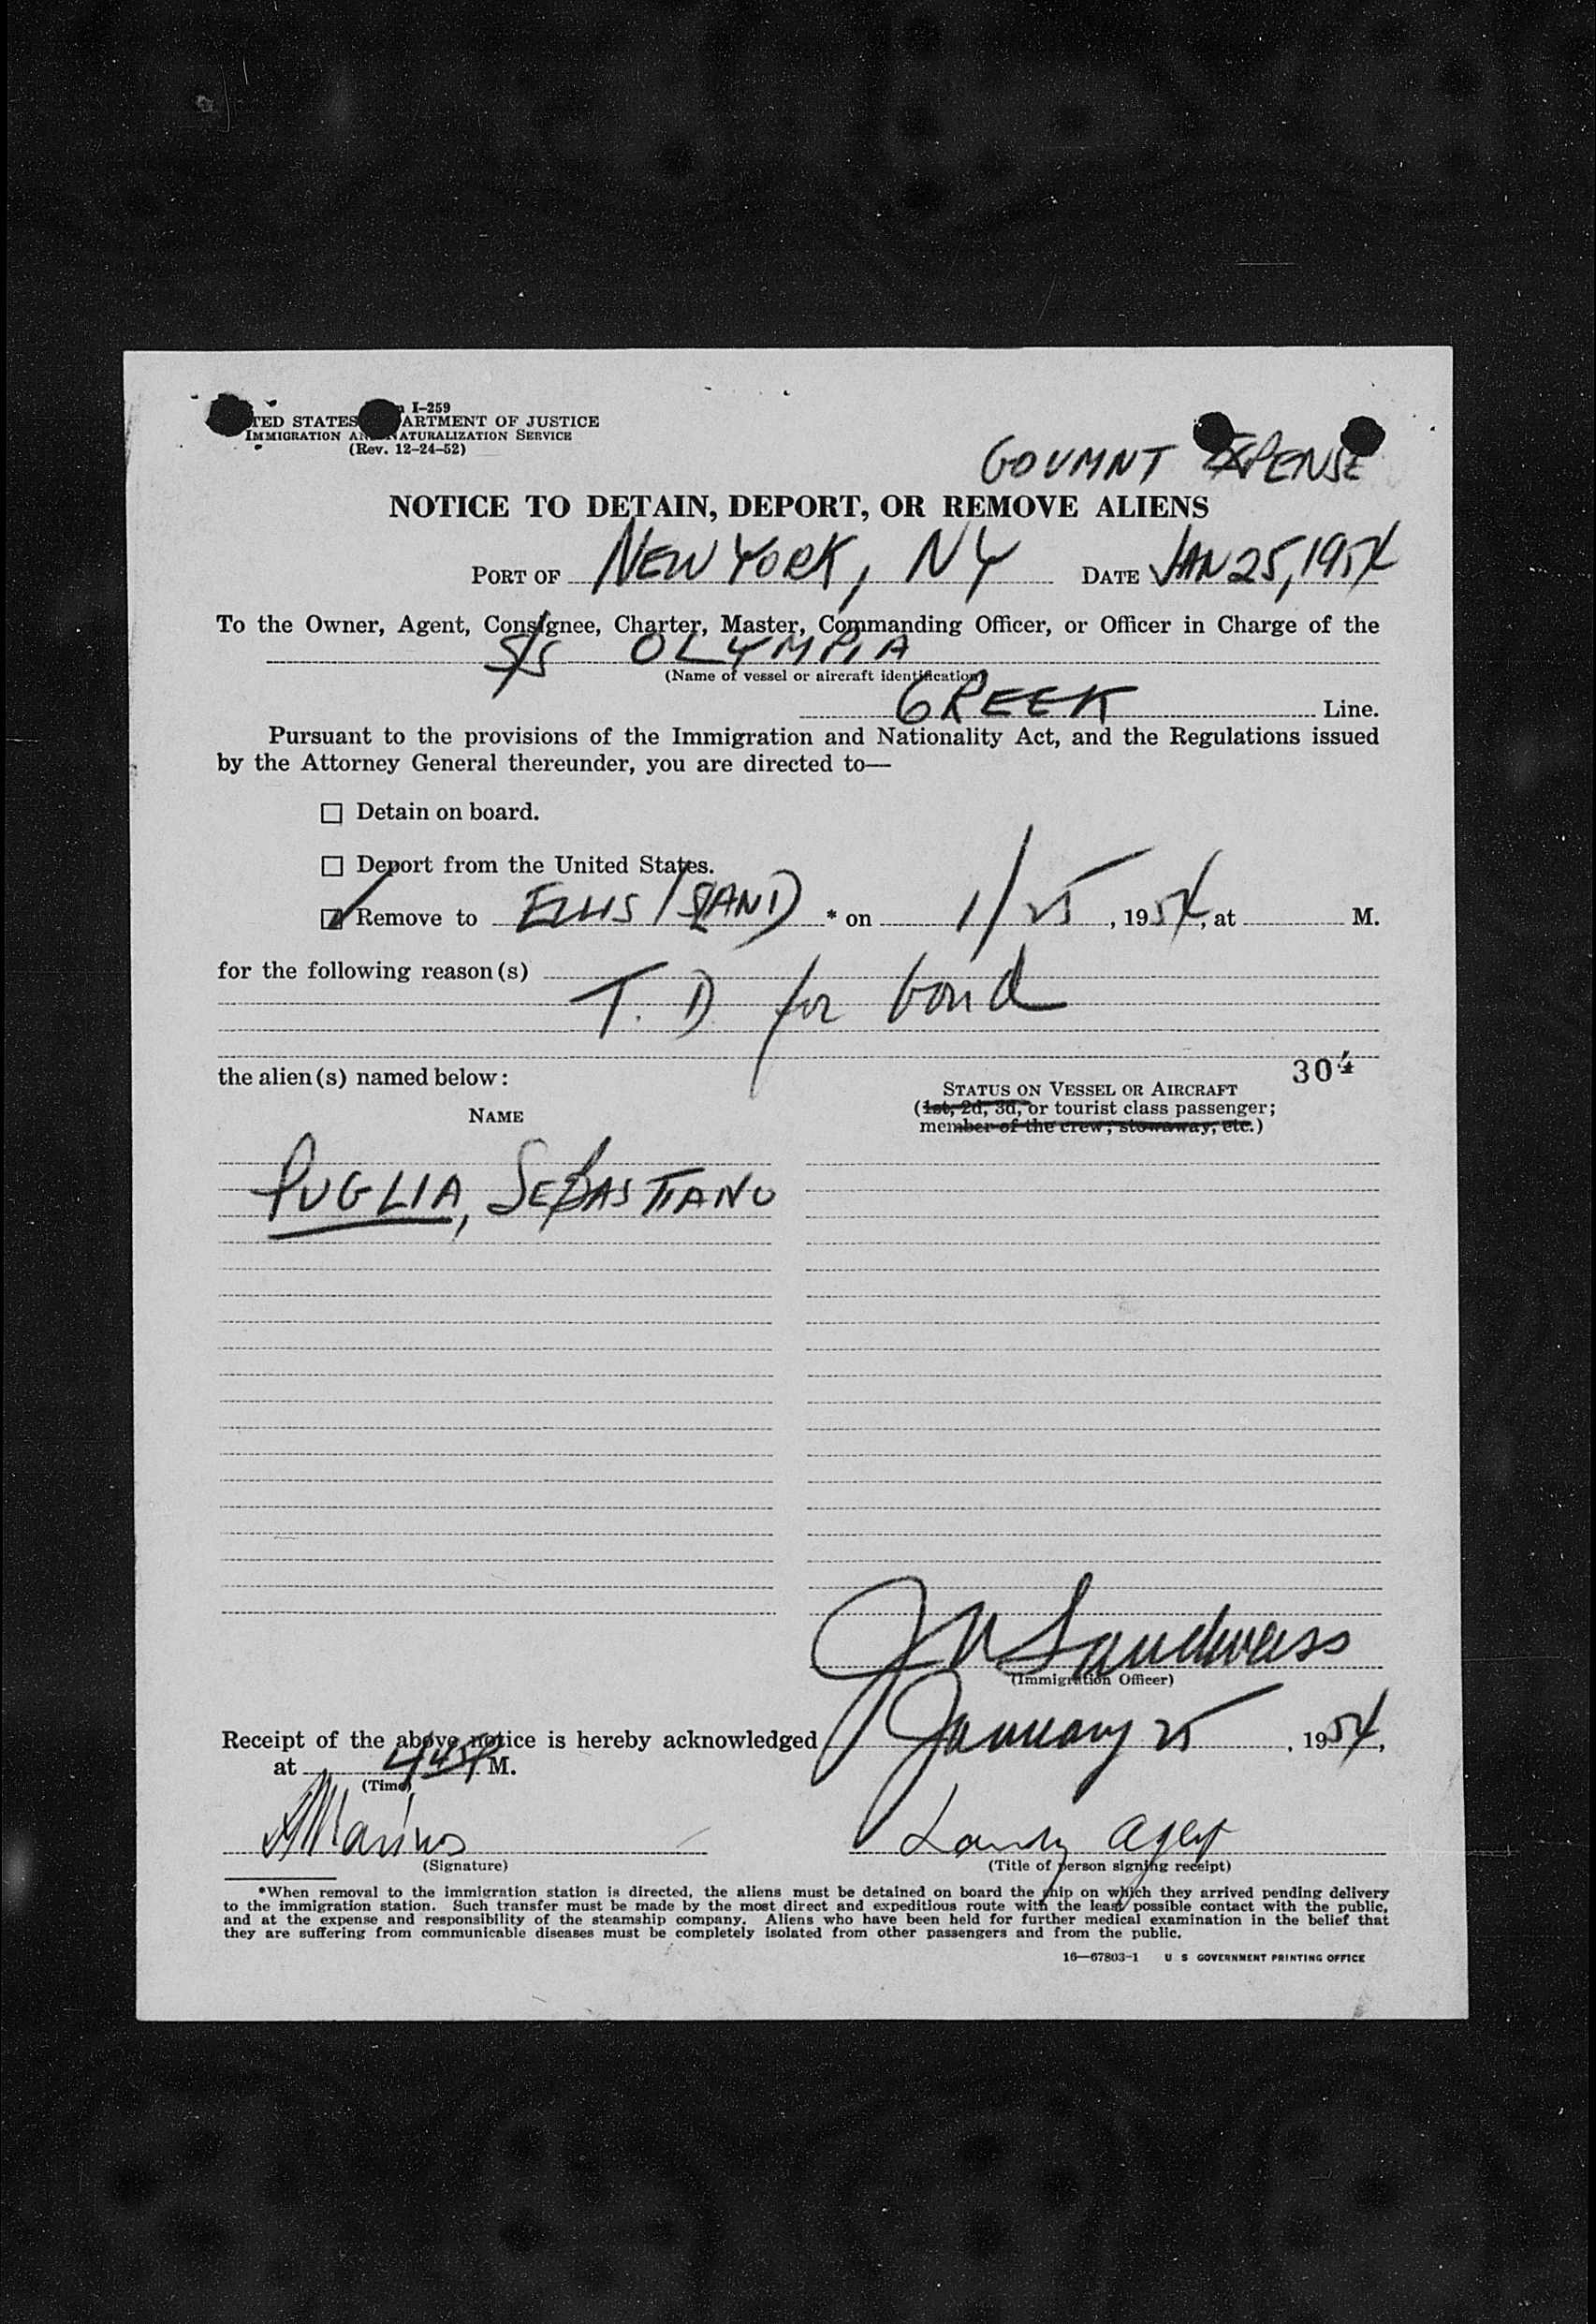 I-259
TED STATES ARTMENT OF JUSTICE
IMMIGRATION AND NATURALIZATION SERVICE
(Rev. 12-24-52)
GOVMNT EXPENSE
NOTICE TO DETAIN, DEPORT, OR REMOVE ALIENS
PORT OF NEW YORK, NY DATE JAN 25, 1954
To the Owner, Agent, Consignee, Charter, Master, Commanding Officer, or Officer in Charge of the
S/S OLYMPIA
(Name of vessel or aircraft identification)
GREEK Line.
Pursuant to the provisions of the Immigration and Nationality Act, and the Regulations issued
by the Attorney General thereunder, you are directed to—
Detain on board.
Deport from the United States.
Remove to ELLIS ISLAND * on 1/25, 1954, at M.
for the following reason(s)
T. D. for bond
the alien(s) named below: 304
STATUS ON VESSEL OR AIRCRAFT
NAME
(1st, 2d, 3d, or tourist class passenger;
member of the crew, stowaway, etc.)
PUGLIA, SEBASTIANO
Sandweiss
(Immigration Officer)
Receipt of the above notice is hereby acknowledged January 25, 1954,
at 445P M.
(Time)
Marinos Landg Agent
(Signature) (Title of person signing receipt)
*When removal to the immigration station is directed, the aliens must be detained on board the ship on which they arrived pending delivery
to the immigration station. Such transfer must be made by the most direct and expeditious route with the least possible contact with the public,
and at the expense and responsibility of the steamship company. Aliens who have been held for further medical examination in the belief that
they are suffering from communicable diseases must be completely isolated from other passengers and from the public.
16—67803-1 U S GOVERNMENT PRINTING OFFICE